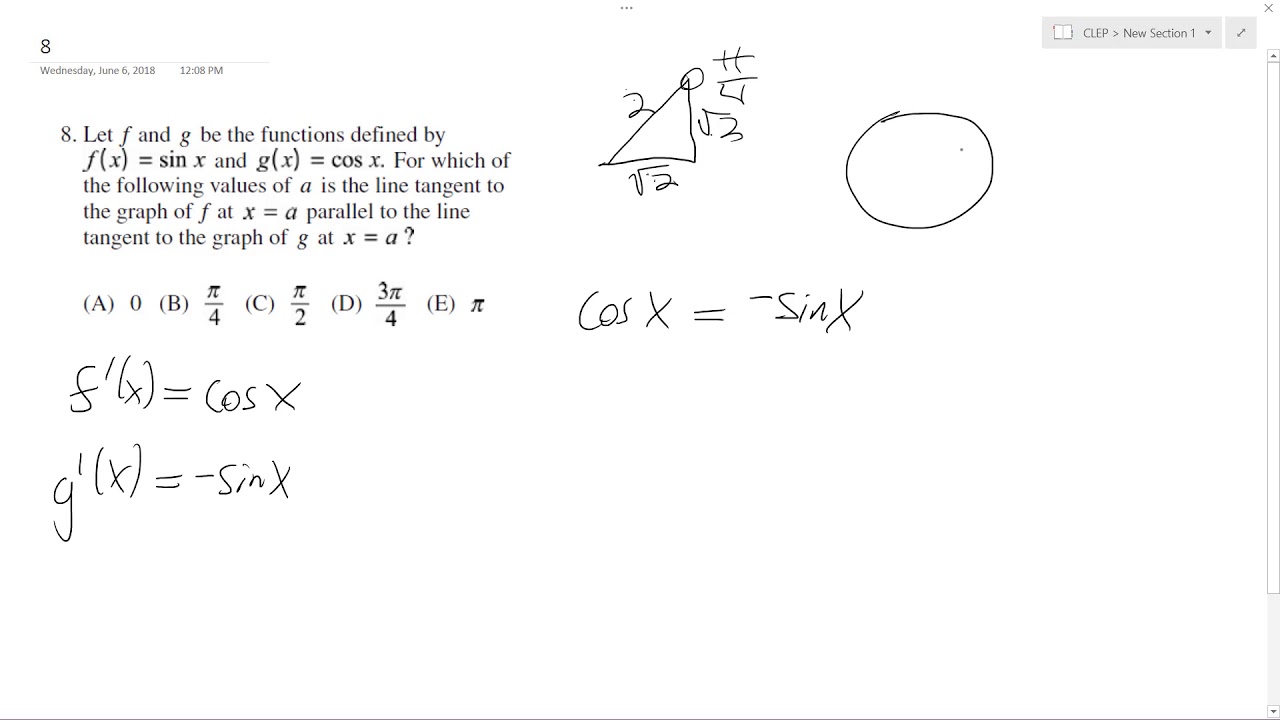 8
Wednesday, June 6, 2018 12:08 PM
CLEP > New Section 1
8. Let f and g be the functions defined by
f(x) = sin x and g(x) = cos x. For which of
the following values of a is the line tangent to
the graph of f at x = a parallel to the line
tangent to the graph of g at x = a ?
(A) 0 (B) π/4 (C) π/2 (D) 3π/4 (E) π
2
π/4
√2
√2
cos x = -sin x
f'(x) = cos x
g'(x) = -sin x